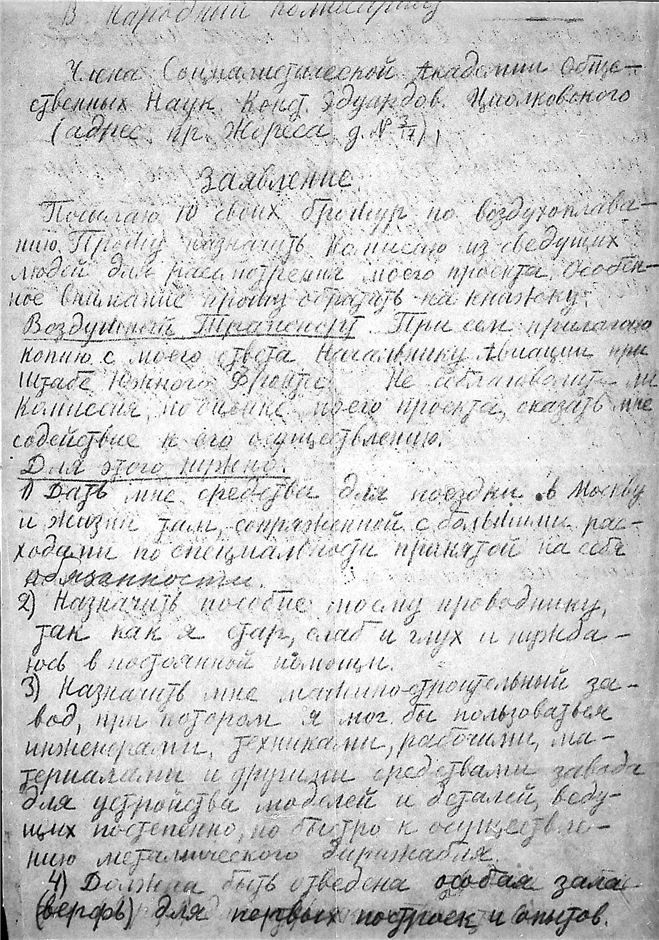 В Народный Комисариат
Члена Социалистической Академии Обще-
ственных Наук Конст. Эдуардов. Циолковского
(адрес. пр. Жореса д. № 3/17),
Заявление.
Посылаю 10 своих брошюр по воздухоплава-
нию. Прошу назначить Комисаю из сведущих
людей для рассмотрения моего проекта. Особен-
ное внимание прошу обратить на книжку:
Воздушный Транспорт. При сем прилагаю
копию с моего ответа Начальнику Авиации при
Штабе Южного Фронта. Не соблаговолит ли
Комиссия, по оценке моего проекта, оказать мне
содействие к его осуществлению.
Для этого нужно:
1) Дать мне средства для поездки в Москву
и жизни там, сопряженной с большими рас-
ходами по специальности принятой на себя
обязанности.
2) Назначить пособие моему проводнику,
так как я стар, слаб и глух и нужда-
юсь в постоянной помощи.
3) Назначить мне машино-строительный за-
вод, при котором я мог бы пользоваться
инженерами, техниками, рабочими, ма-
териалами и другими средствами завода
для устройства моделей и деталей, веду-
щих постепенно, но быстро к осуществле-
нию металлического дирижабля.
4) Должна быть отведена особая зала
(верфь) для первых построек и опытов.